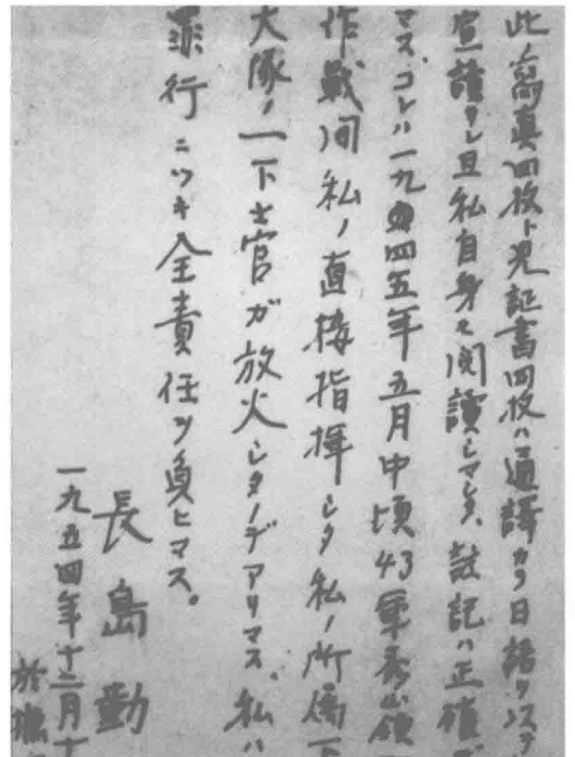 此ノ寫真四枚ト見証書四枚ハ通譯カラ日語
宣讀サレ且私自身モ閲讀シマシタ、誌記ハ正確デ
マス、コレハ一九四五年五月中頃43軍秀嶺
作戰间私ノ直接指揮シタ私ノ所属
大隊ノ一下士官ガ放火シタノデアリマス、私ハ
罪行ニツキ全責任ヲ負ヒマス。
長島勤
一九五四年十二月十
於撫